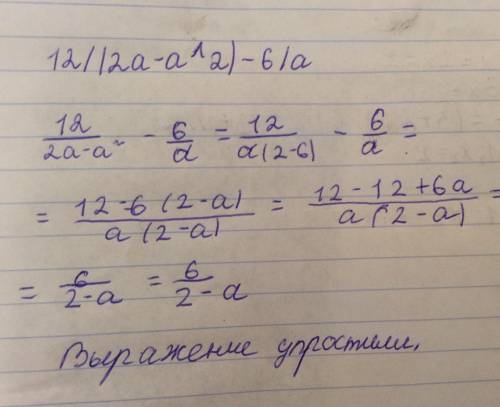 12/(2a-a^2)-6/a
12/2a-a² - 6/a = 12/a(2-6) - 6/a =
= 12-6(2-a)/a(2-a) = 12-12+6a/a(2-a) =
= 6/2-a = 6/2-a
Выражение упростили.